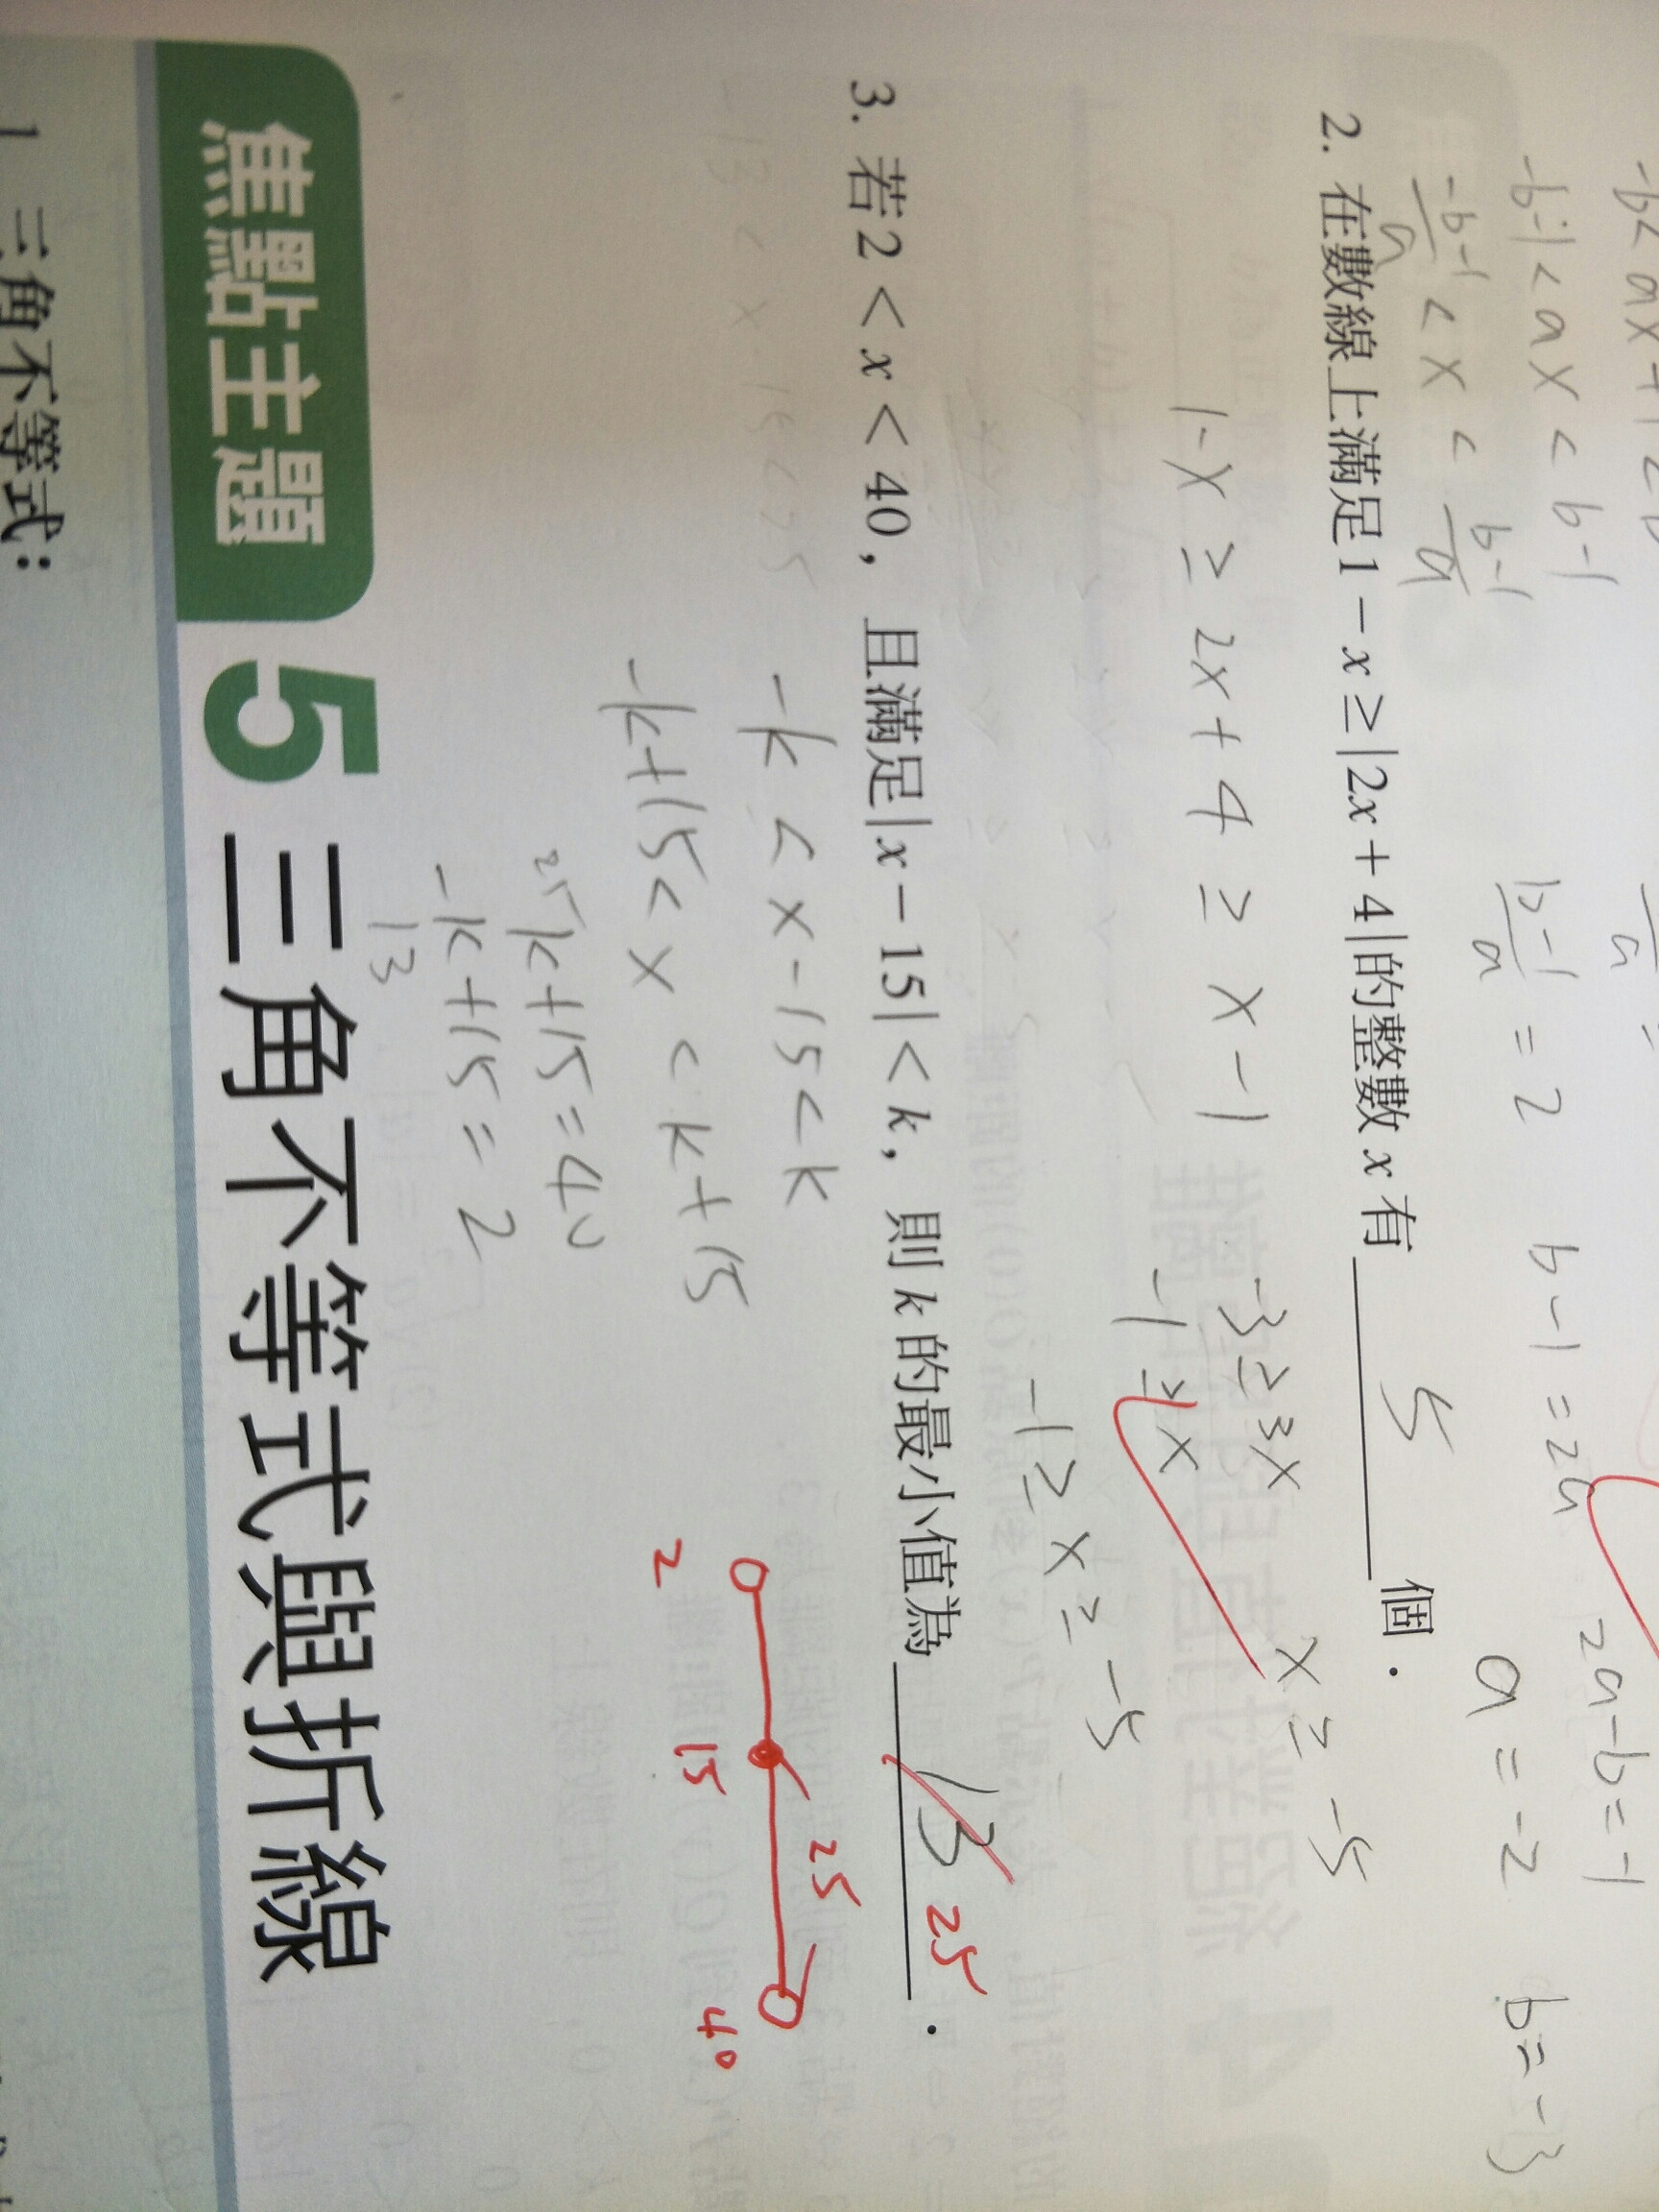 -b< ax+1 <b
-b-1 < ax < b-1
-b-1/a < x < b-1/a
b-1/a = 2
b-1=2a
2a-b=-1
a=-2
b=-3
2. 在數線上滿足1－x≥|2x＋4|的整數x有 5 個．
1-x ≥ 2x+4 ≥ x-1
-3≥3x
-1≥x
x≥-5
-1≥x≥-5
3. 若2＜x＜40，且滿足|x－15|＜k，則k的最小值為 13 25 ．
-k < x-15 < k
-k+15 < x < k+15
25 k+15=40
-k+15=2
13
25
2 15 40
焦點主題 5 三角不等式與折線
1 三角不等式：